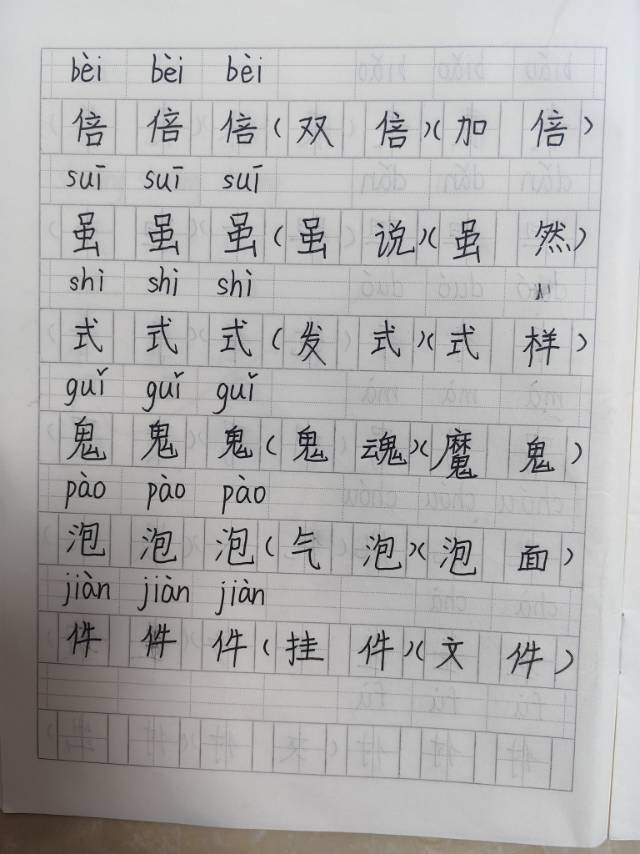 bèi bèi bèi
倍 倍 倍(双 倍)(加 倍)
suī suī suī
虽 虽 虽(虽 说)(虽 然)
shì shì shì
式 式 式(发 式)(式 样)
guǐ guǐ guǐ
鬼 鬼 鬼(鬼 魂)(魔 鬼)
pào pào pào
泡 泡 泡(气 泡)(泡 面)
jiàn jiàn jiàn
件 件 件(挂 件)(文 件)